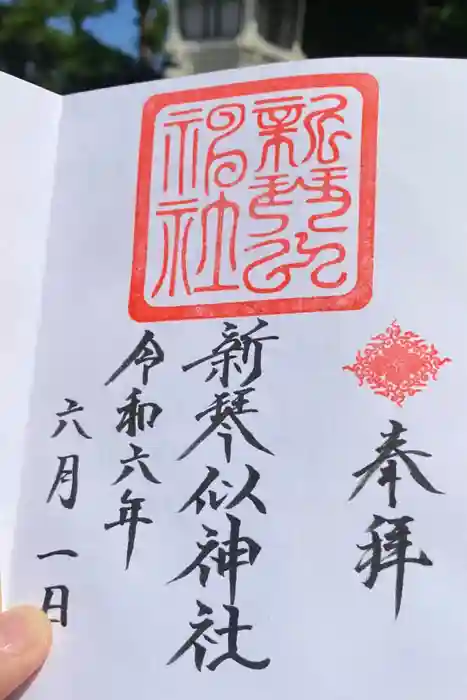 奉拝
新琴似
神社
新琴似神社
令和六年
六月一日